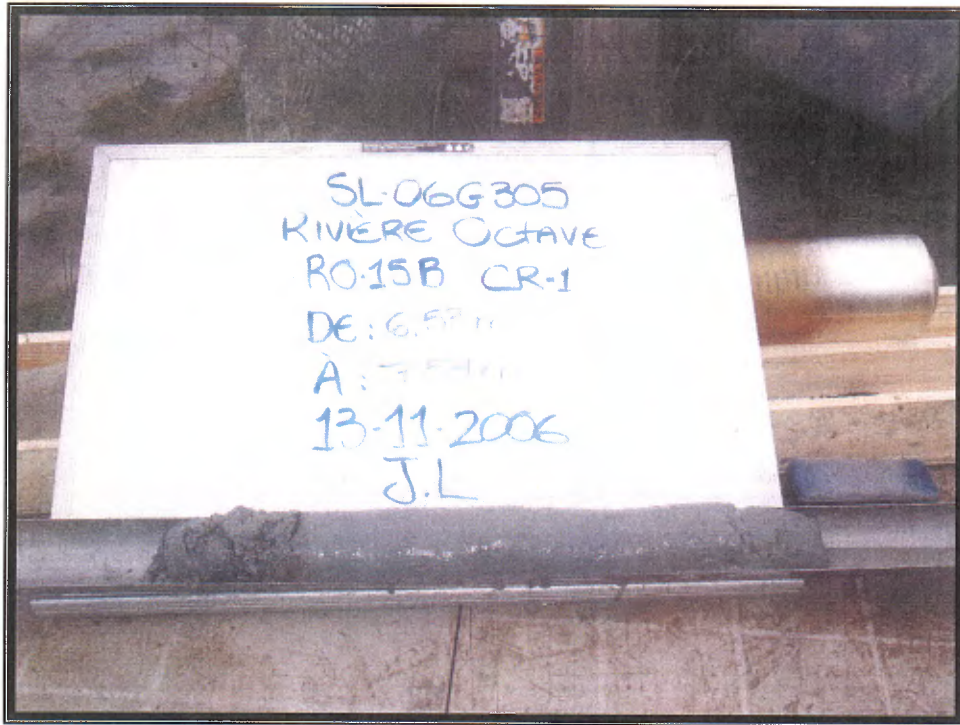 SL-06G305
RIVIÈRE OCTAVE
RO-15B CR-1
DE:
À:
13-11-2006
J.L